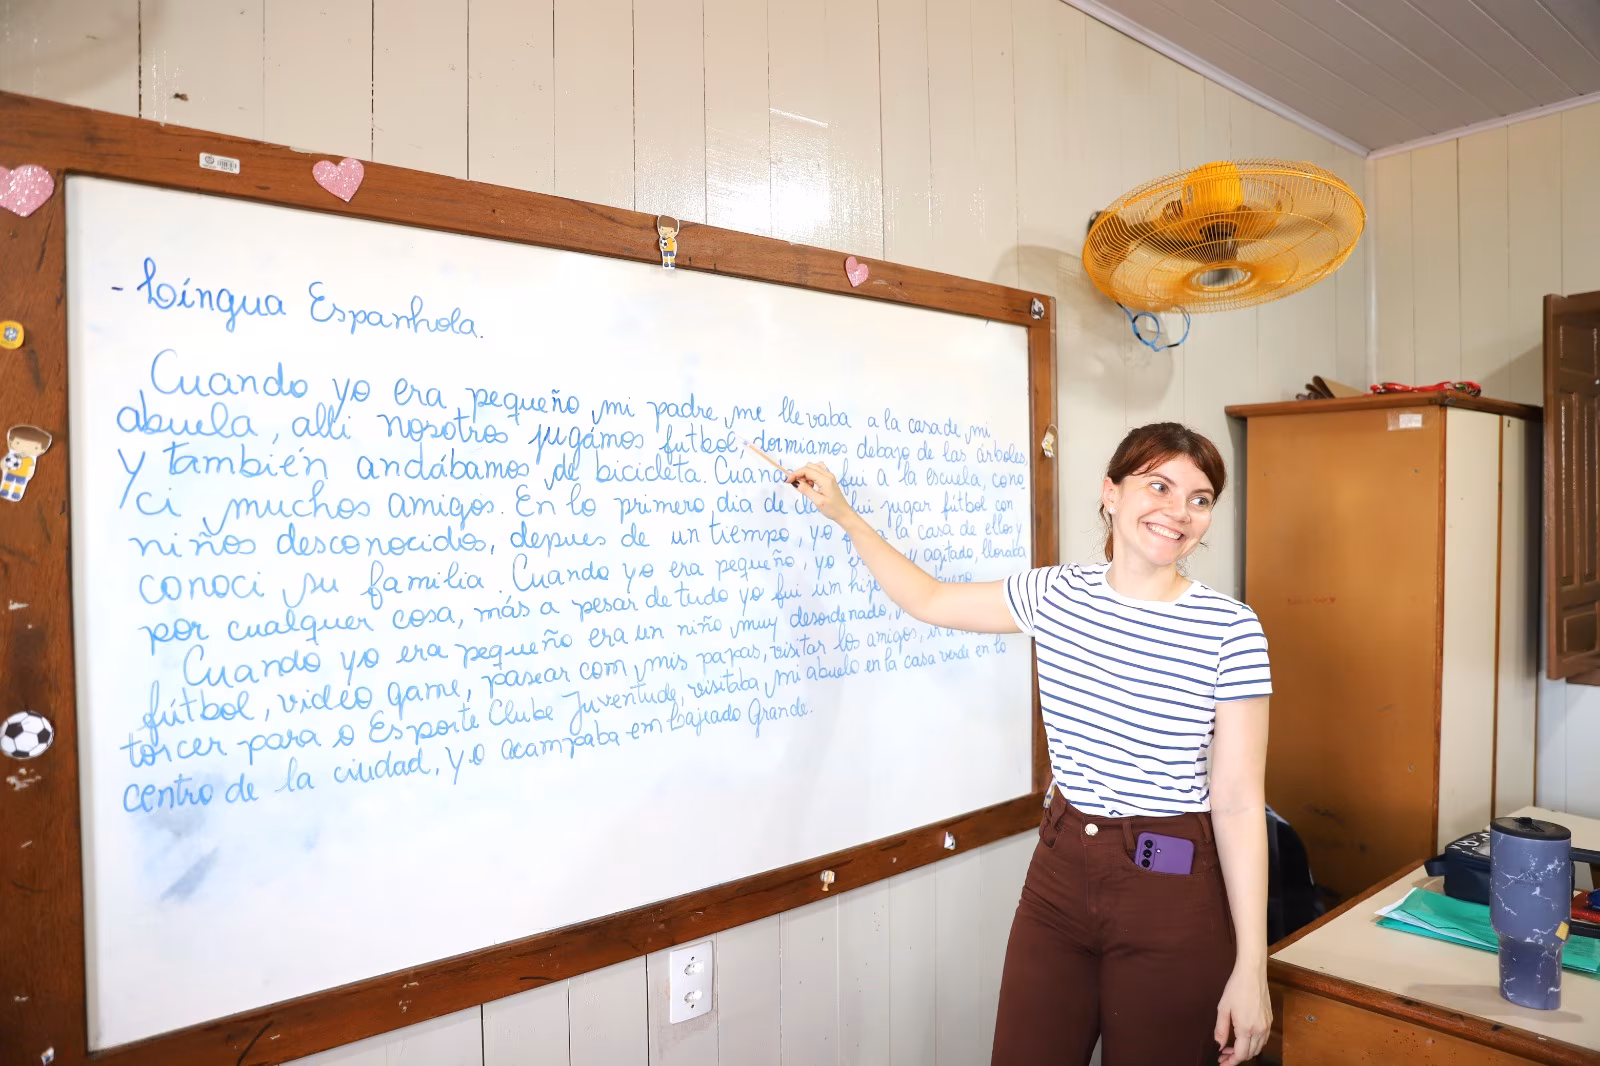 - Língua Espanhola.
Cuando yo era pequeño mi padre me llevaba a la casa de mi
abuela, alli nosotros jugámos futbol, dormiamos debajo de las árboles,
y también andábamos de bicicleta. Cuando fui a la escuela, cono
ci muchos amigos. En lo primero dia de fui jugar fútbol con
niños desconocidos, depues de un tiempo, yo a la casa de ellos y
conoci su familia. Cuando yo era pequeño, yo agitado, lloraba
por cualquer cosa, más a pesar de tudo yo fui um hijo bueno
Cuando yo era pequeño era un niño muy desordenado,
fútbol, video game, pasear com mis papas, visitar los amigos,
torcer para o Esporte Clube Juventude, visitaba mi abuelo en la casa verde en lo
centro de la ciudad, yo acampaba em Lajeado Grande.